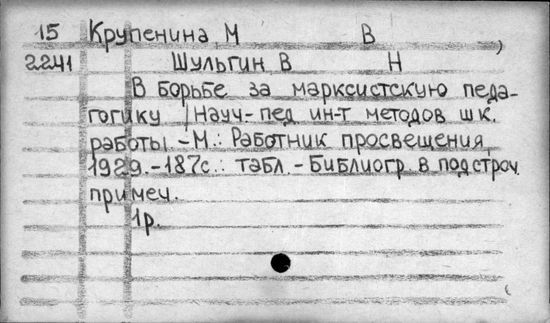 15 Крупенина М В
2241 Шульгин В Н
В борьбе за марксистскую педа-
гогику /Науч-пед ин-т методов шк.
работы.-М.: Работник просвещения,
1929.-187с.: табл.-Библиогр. в подстроч.
примеч.
1р.